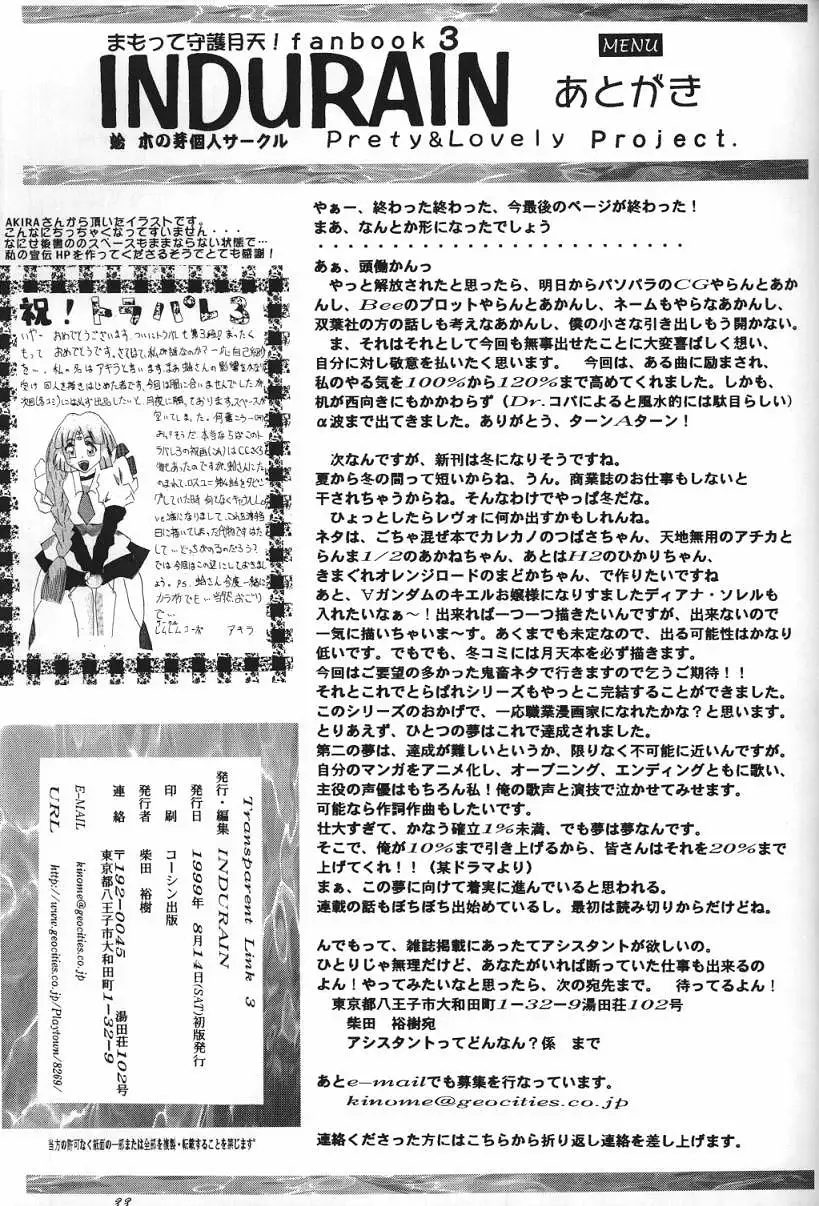 まもって守護月天！fanbook 3
INDURAIN
MENU
あとがき
蛤 木の芽個人サークル
Prety&Lovely Project.
AKIRAさんから頂いたイラストです。
こんなにちっちゃくなってすいません・・・
なにせ後書ののスペースもままならない状態で…
私の宣伝HPを作ってくださるそうでとても感謝！
祝！トラパレ3
アキラ
やぁー、終わった終わった、今最後のページが終わった！
まあ、なんとか形になったでしょう
・・・・・・・・・・・・・・・・・・・・・・・・・・
あぁ、頭働かんっ
やっと解放されたと思ったら、明日からパソパラのCGやらんとあか
んし、Beeのプロットやらんとあかんし、ネームもやらなあかんし、
双葉社の方の話しも考えなあかんし、僕の小さな引き出しもう開かない。
ま、それはそれとして今回も無事出せたことに大変喜ばしく想い、
自分に対し敬意を払いたく思います。　今回は、ある曲に励まされ、
私のやる気を100%から120%まで高めてくれました。しかも、
机が西向きにもかかわらず（Dr.コパによると風水的には駄目らしい）
α波まで出てきました。ありがとう、ターンAターン！
次なんですが、新刊は冬になりそうですね。
夏から冬の間って短いからね、うん。商業誌のお仕事もしないと
干されちゃうからね。そんなわけでやっぱ冬だな。
ひょっとしたらレヴォに何か出すかもしれんね。
ネタは、ごちゃ混ぜ本でカレカノのつばさちゃん、天地無用のアチカと
らんま1/2のあかねちゃん、あとはH2のひかりちゃん、
きまぐれオレンジロードのまどかちゃん、で作りたいですね
あと、∀ガンダムのキエルお嬢様になりすましたディアナ・ソレルも
入れたいなぁ〜！出来れば一つ一つ描きたいんですが、出来ないので
一気に描いちゃいま〜す。あくまでも未定なので、出る可能性はかなり
低いです。でもでも、冬コミには月天本を必ず描きます。
今回はご要望の多かった鬼畜ネタで行きますので乞うご期待！！
それとこれでとらぱれシリーズもやっとこ完結することができました。
このシリーズのおかげで、一応職業漫画家になれたかな？と思います。
とりあえず、ひとつの夢はこれで達成されました。
第二の夢は、達成が難しいというか、限りなく不可能に近いんですが。
自分のマンガをアニメ化し、オープニング、エンディングともに歌い、
主役の声優はもちろん私！俺の歌声と演技で泣かせてみせます。
可能なら作詞作曲もしたいです。
壮大すぎて、かなう確立1%未満、でも夢は夢なんです。
そこで、俺が10%まで引き上げるから、皆さんはそれを20%まで
上げてくれ！！（某ドラマより）
まぁ、この夢に向けて着実に進んでいると思われる。
連載の話もぼちぼち出始めているし。最初は読み切りからだけどね。
んでもって、雑誌掲載にあったてアシスタントが欲しいの。
ひとりじゃ無理だけど、あなたがいれば断っていた仕事も出来るの
よん！やってみたいなと思ったら、次の宛先まで。　待ってるよん！
東京都八王子市大和田町1−32−9湯田荘102号
柴田　裕樹宛
アシスタントってどんなん？係　まで
あとe−mailでも募集を行なっています。
kinome@geocities.co.jp
連絡くださった方にはこちらから折り返し連絡を差し上げます。
Transparent Link 3
発行・編集　INDURAIN
発行日　1999年 8月14日(SAT)初版発行
印刷　コーシン出版
発行者　柴田　裕樹
連絡　〒192-0045
東京都八王子市大和田町1−32−9
湯田荘102号
E-MAIL　kinome@geocities.co.jp
URL　http://www.geocities.co.jp/Playtown/8269/
当方の許可なく紙面の一部または全部を複製・転載することを禁じます
33